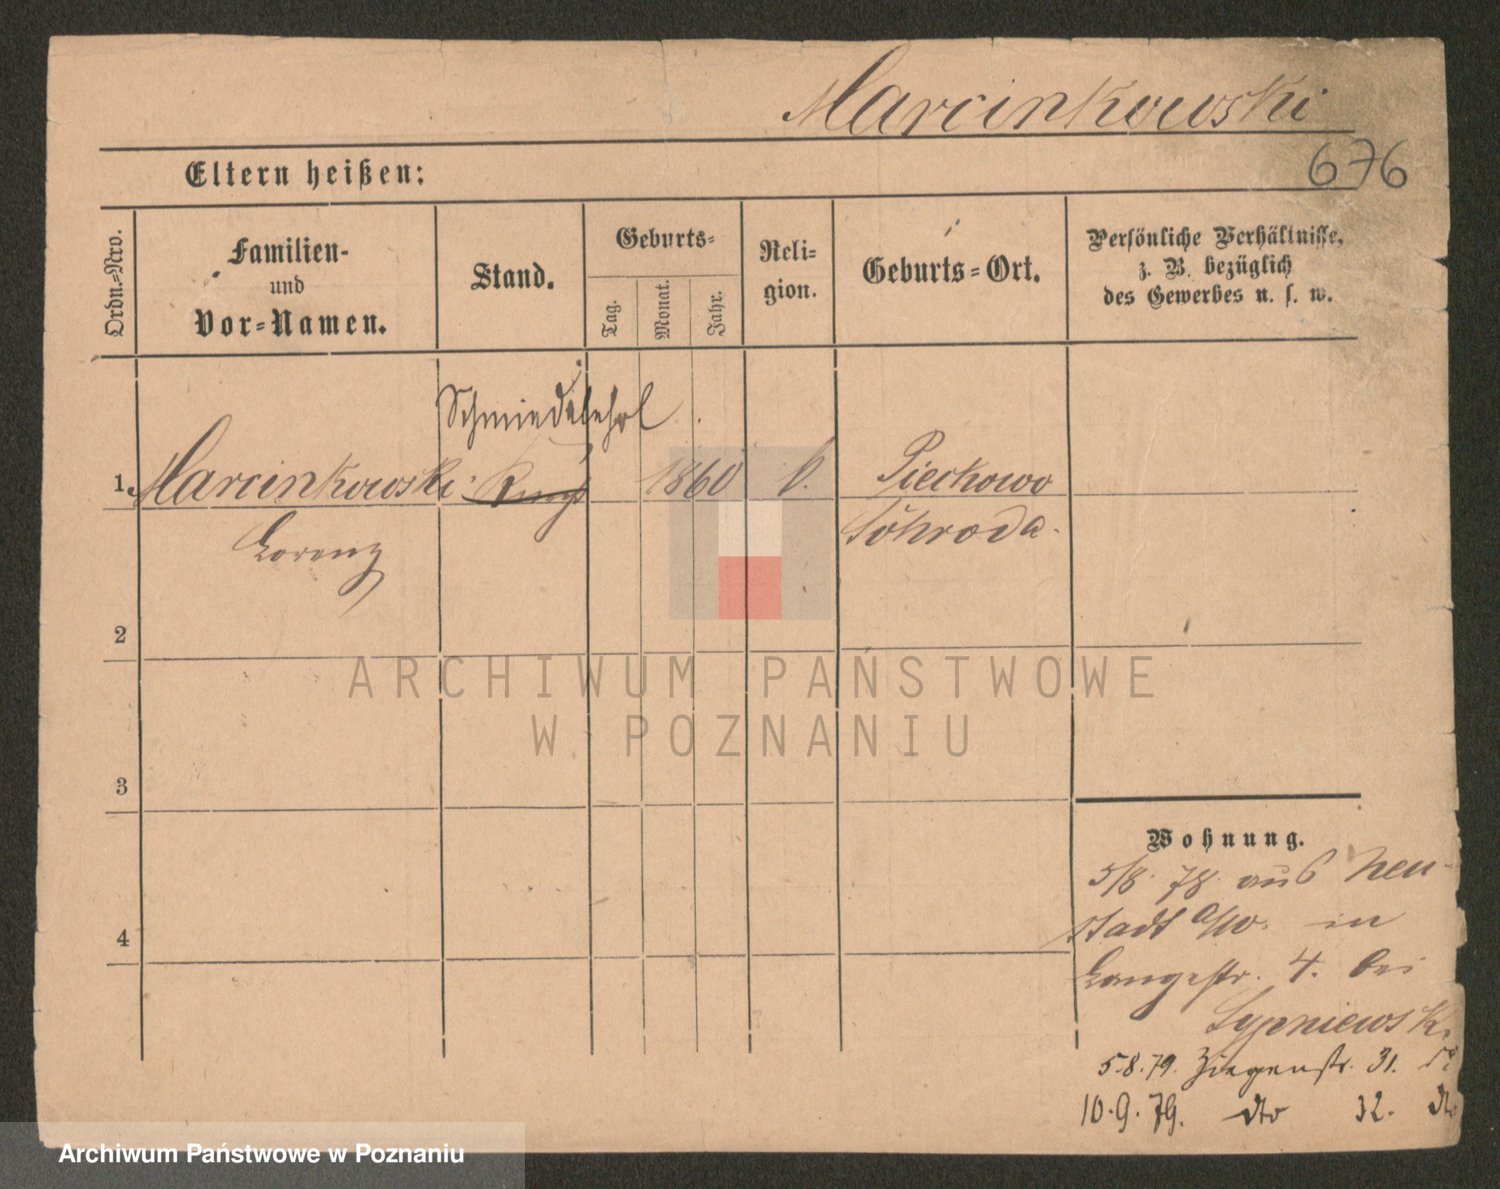 Marcinkowski
676
Eltern heißen:
Ordn.-Nro.
Familien-
und
Vor-Namen.
Stand.
Geburts-
Tag.
Monat.
Jahr.
Reli-
gion.
Geburts-Ort.
Persönliche Verhältnisse,
z. B. bezüglich
des Gewerbes u. s. w.
Schmiedelehrl
1. Marcinkowski 1860 k. Pierkowo
Lorenz Schroda.
2
3
4
Wohnung.
5/8. 78. aus Neu-
stadt a/W. in
Langestr. 4. bei
Sypniewski
5.8.79. Ziegenstr. 31.
10.9.79. dto 32.
ARCHIWUM PAŃSTWOWE
W POZNANIU
Archiwum Państwowe w Poznaniu